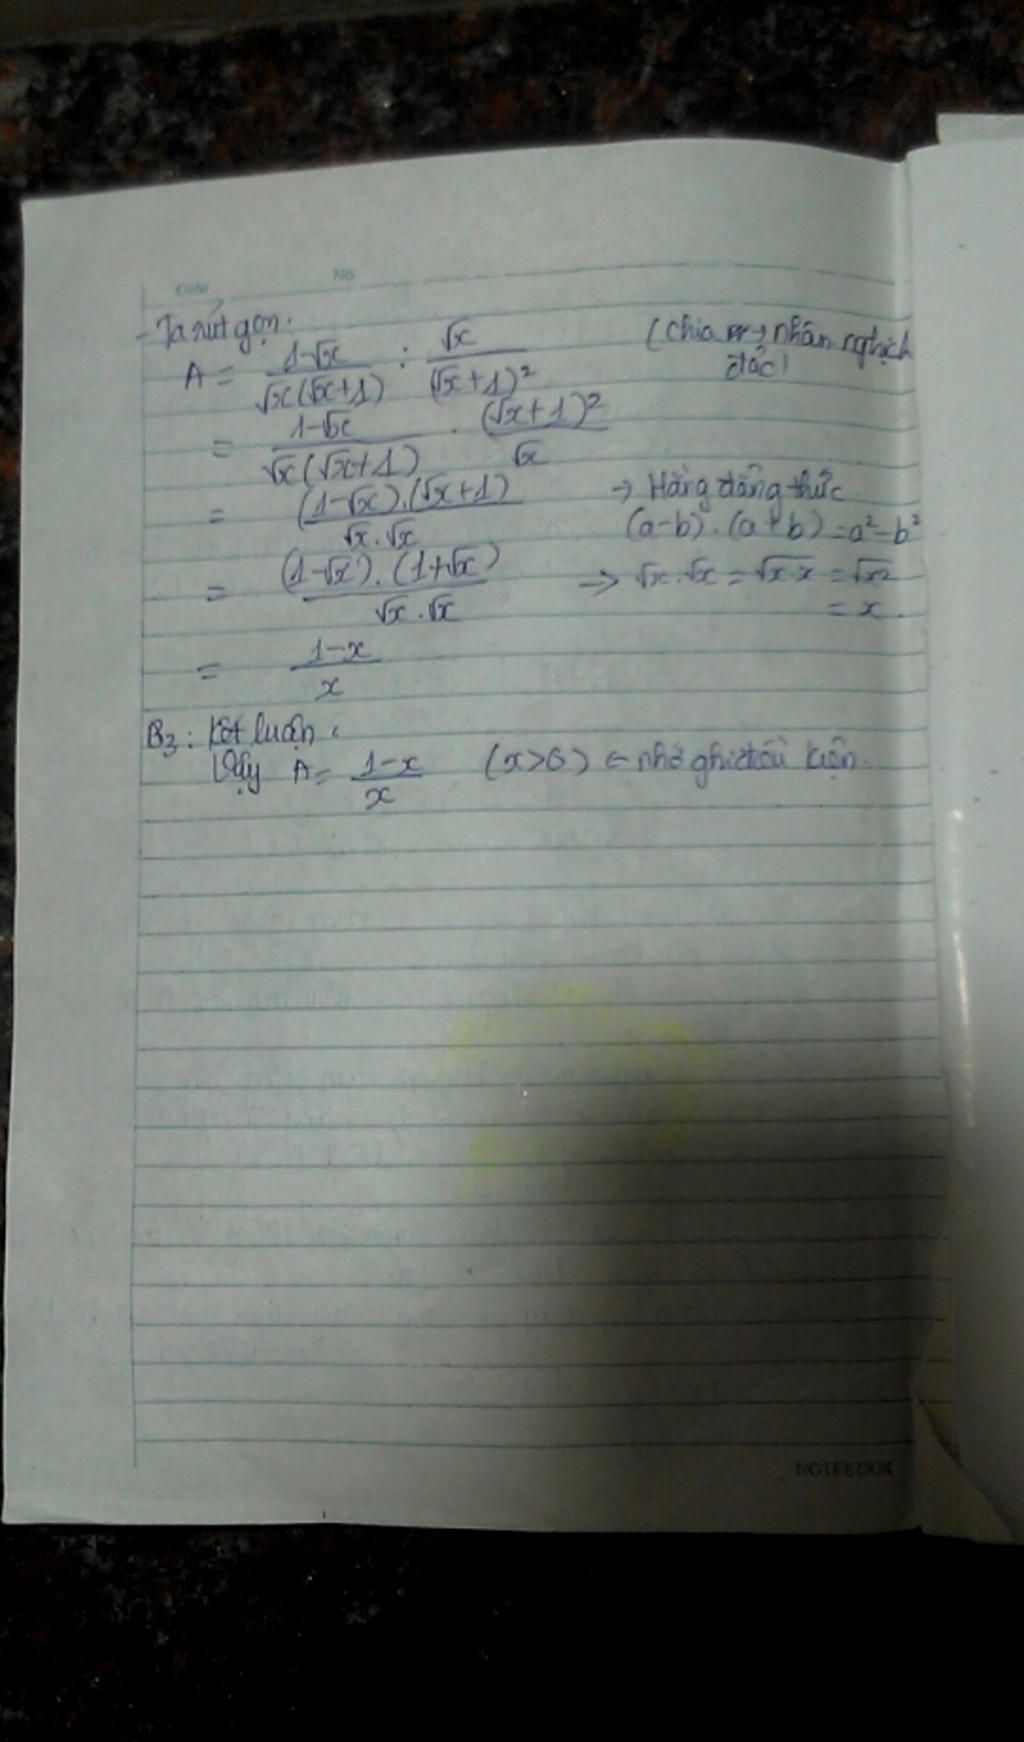 Date No
- Ta rút gọn.
A = (1-√x)/(√x(√x+1)) : √x/(√x+1)² (Chia → nhân nghịch đảo)
= (1-√x)/(√x(√x+1)) . (√x+1)²/√x
= ((1-√x).(√x+1))/(√x.√x) → Hằng đẳng thức
(a-b).(a+b)=a²-b²
= ((1-√x).(1+√x))/(√x.√x) → √x.√x = √x.x = √x²
= x.
= (1-x)/x
B3: Kết luận:
Vậy A = (1-x)/x (x>0) ← nhớ ghi điều kiện
NOTEBOOK